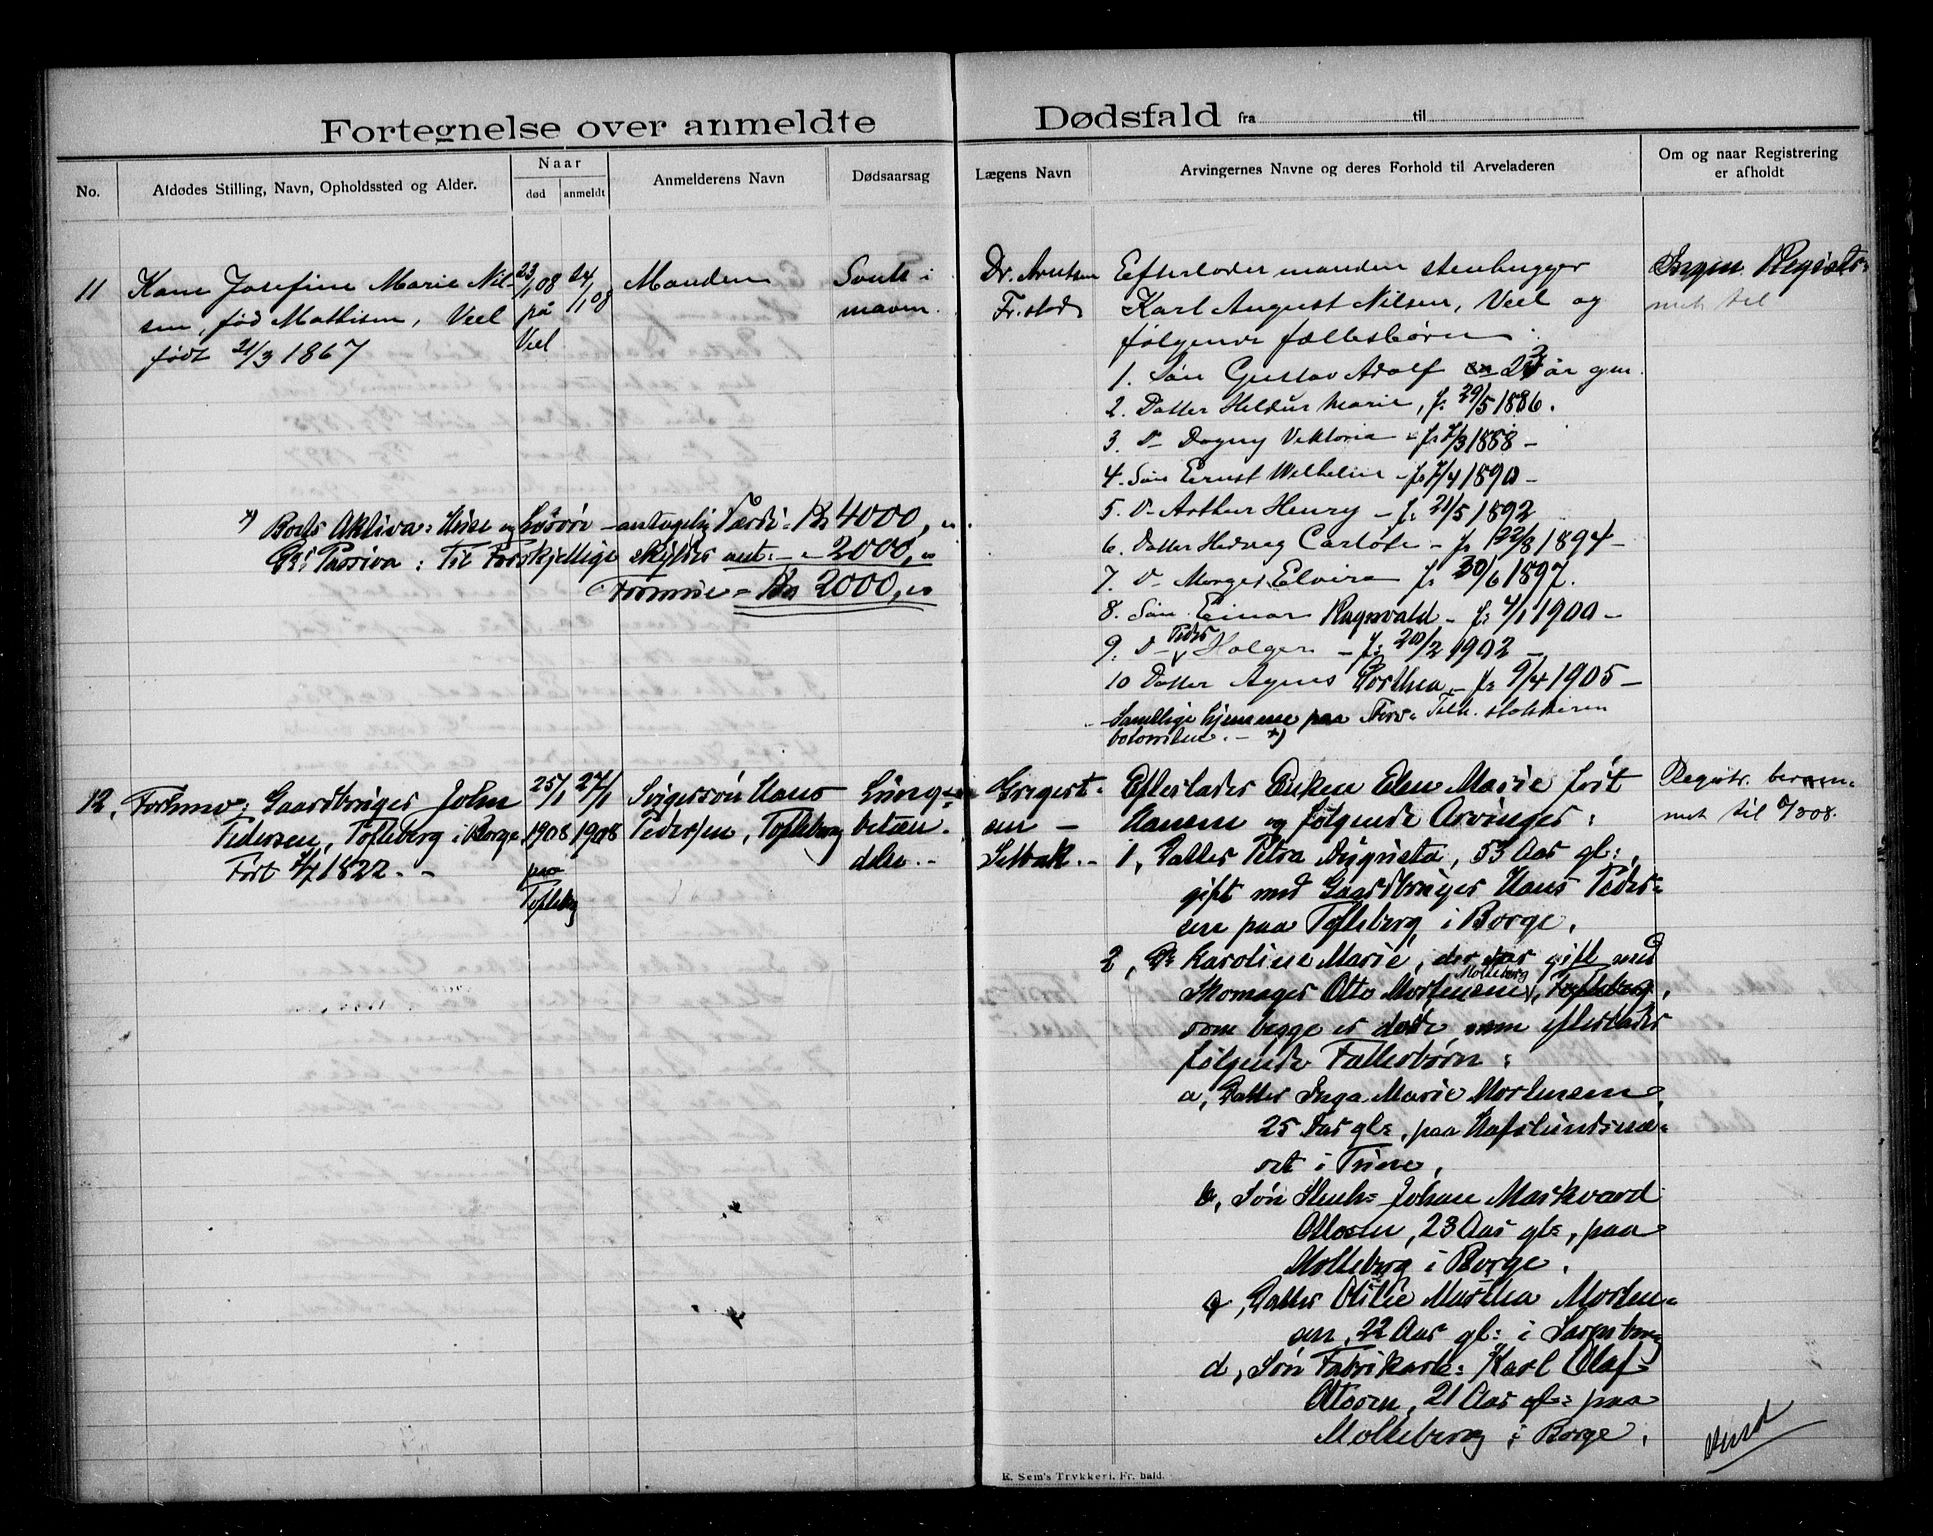 Fortegnelse over anmeldte Dødsfald fra til
No.
Afdødes Stilling, Navn, Opholdssted og Alder.
Naar
død
anmeldt
Anmelderens Navn
Dødsaarsag
Lægens Navn
Arvingernes Navne og deres Forhold til Arveladeren
Om og naar Registrering
er afholdt
11
Kone Josefine Marie Nil-
sen, fød Mathisen, Veel
født 21/3 1867
23/1 08
på
Veel
24/1 08
Manden
i
maven.
Dr. Arntsen
Fr.stad
Efterlader manden stenhugger
Karl August Nilsen, Veel og
følgende fællesbörn:
1. Sön Gustav Adolf 23 år gm.
2. Datter Hildur Marie, f. 29/5 1886.
3 D- Dagny Viktoria - f. 7/3 1888 -
4. Sön Ernst Wilhelm - f. 7/4 1890 -
5. D- Arthur Henry - f. 21/5 1892
6. Datter Hedvig Carlote - f. 22/8 1894 -
7. D- Elvira f. 30/6 1897.
8. Sön Einar Ragnvald - f: 4/1 1900 -
9. D- Peder Holger - f: 20/2 1902 -
10 Datter Agnes Dorthea - f: 9/4 1905 -
Samtlige hjemme paa
Ingen Registr=
met til
*) Boets Aktiva: Huse og Løsøre - antagelig Værdi - Kr 4000,
Passiva: Til Forskjellige skyldes ant: - 2000,
Formue = Kr 2000,
12,
Forhenv: Gaardbruger John
Pedersen, Tofteberg i Borge
Født 1/7 1822. -
25/1
1908
paa
Tofteberg
27/1
1908
Svigersøn Hans
Pedersen, Tofteberg
Lunge-
betæn-
delse. -
Gregert-
sen -
Selbak. -
Efterlader Enken Elen Marie født
Hansen og følgende Arvinger:
1, Datter Petra Augusta, 53 Aar gl:,
gift med Gaardbruger Hans Peder=
sen paa Tofteberg i Borge.
2, D: Karoline Marie, der var gift med
Skomager Otto Mortensen, Molteberg Tofteberg,
som begge er døde, men efterlader
følgende Fællesbørn:
a, Datter Inga Marie Mortensen,
25 Aar gl:, paa Hafslundsnæ=
set i Tune,
b, Søn Stenh: Johan Markvard
Ottosen, 23 Aar gl:, paa
Molteberg i Borge.
c, Datter Otilie Martha Morten=
sen, 22 Aar gl: i Sarpsborg
d, Søn Fabrikarb: Karl Olaf
Ottosen, 21 Aar gl: paa
Molteberg i Borge.
Registr. beram-
met til 6/3 08.
K. Sem's Trykkeri, Fr.hald.